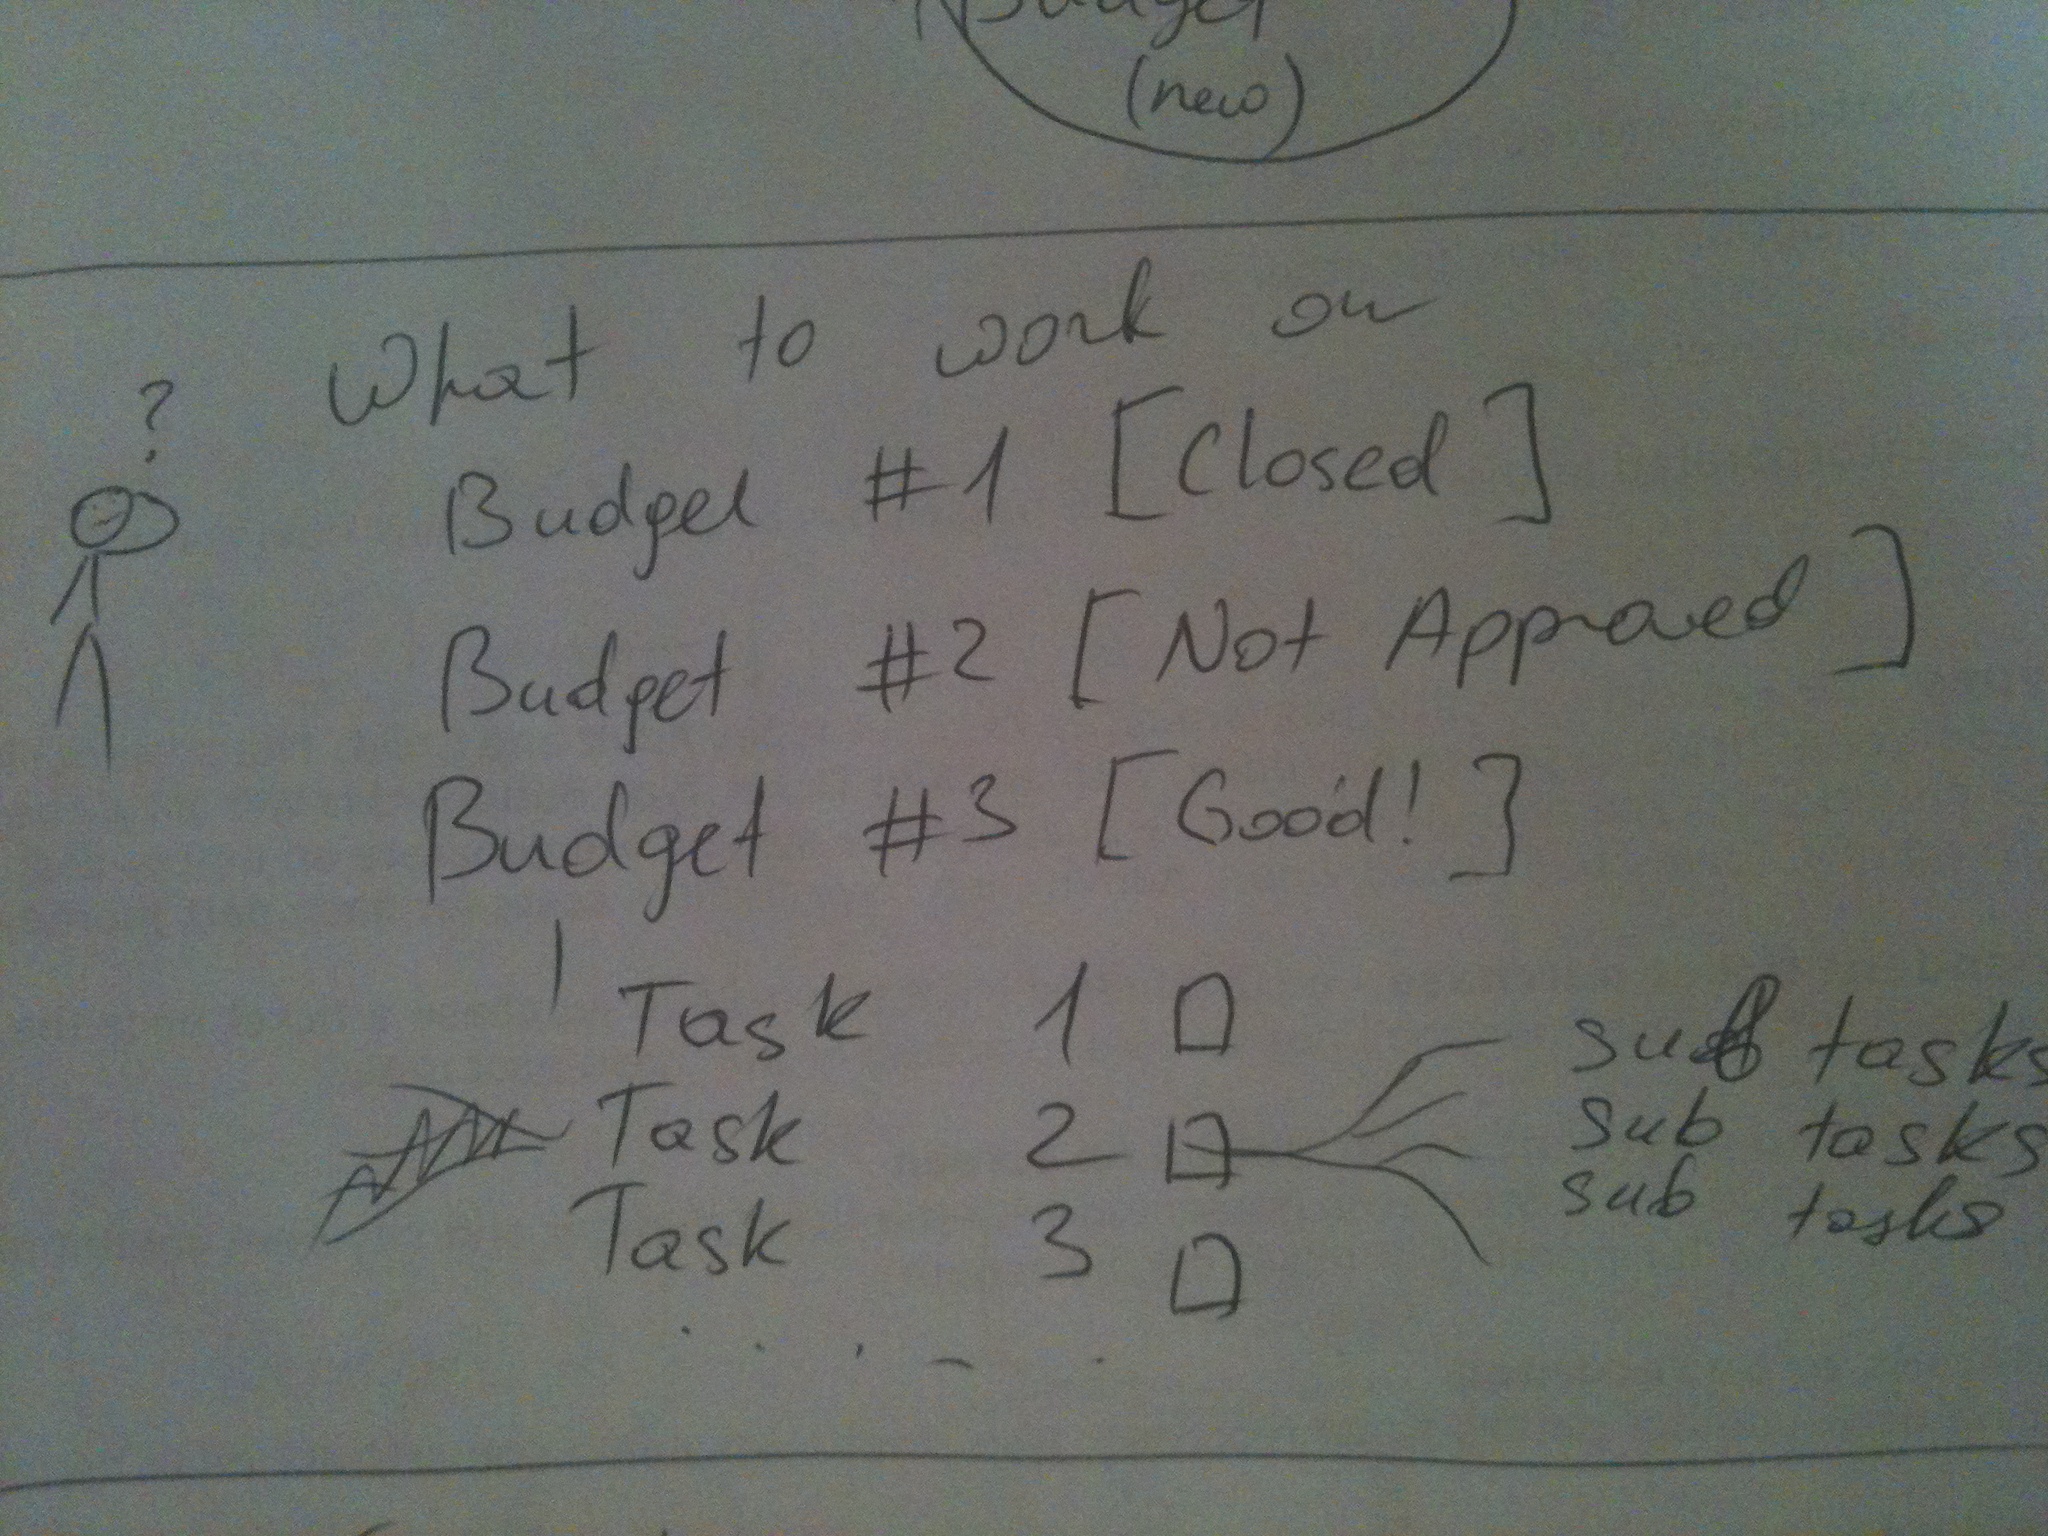 Budget
(new)
?
What to work on
Budget #1 [Closed]
Budget #2 [Not Approved]
Budget #3 [Good!]
Task 1
Task 2
Task 3
sub tasks
sub tasks
sub tasks